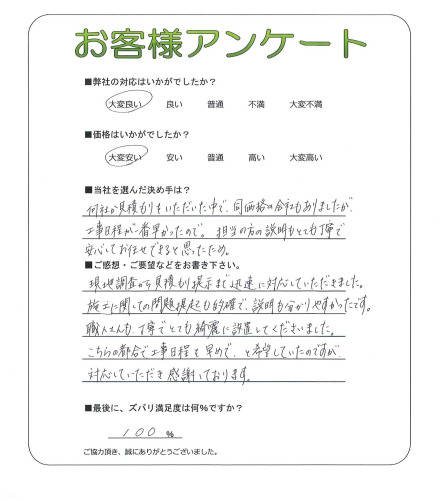 お客様アンケート
■弊社の対応はいかがでしたか？
大変良い 良い 普通 不満 大変不満
■価格はいかがでしたか？
大変安い 安い 普通 高い 大変高い
■当社を選んだ決め手は？
何社か見積もりをいただいた中で、同価格の会社もありましたが、
工事日程が一番早かったので。担当の方の説明もとても丁寧で
安心してお任せできると思ったため。
■ご感想・ご要望などをお書き下さい。
現地調査から見積もり提示まで迅速に対応していただきました。
施工に関しての問題提起も的確で、説明も分かりやすかったです。
職人さんも、丁寧でとても綺麗に設置してくださいました。
こちらの都合で工事日程を早めで、と希望していたのですが、
対応していただき感謝しております。
■最後に、ズバリ満足度は何％ですか？
100 %
ご協力頂き、誠にありがとうございました。